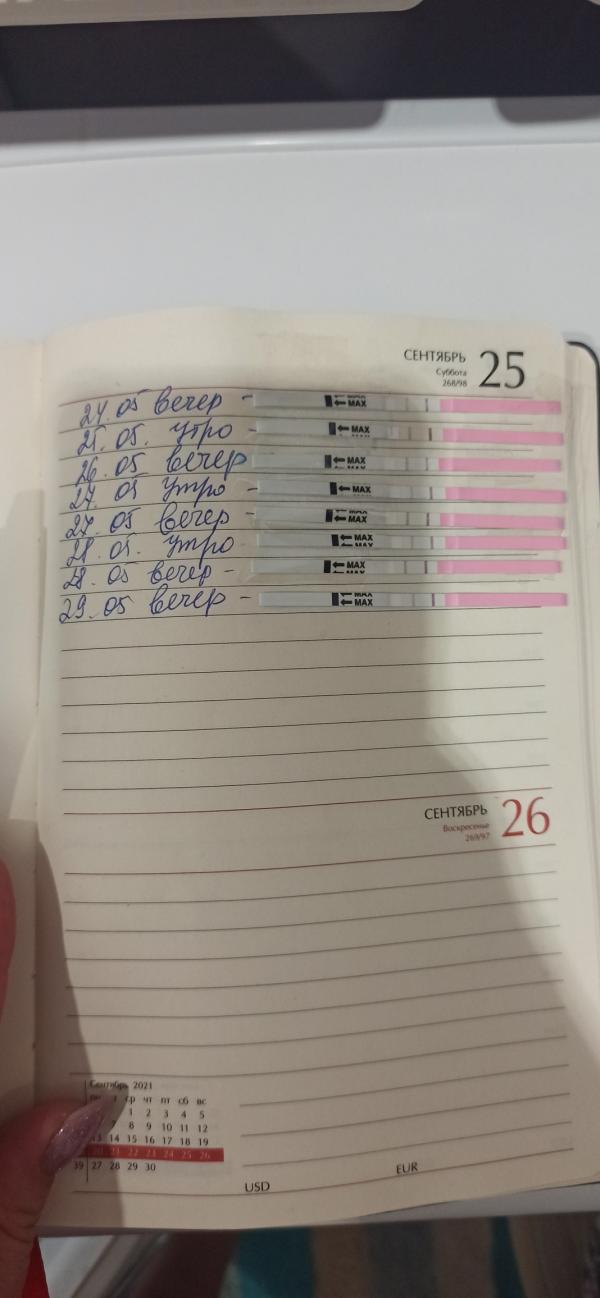 СЕНТЯБРЬ 25
Суббота
268/98
24.05 вечер - MAX
25.05. утро - MAX
26.05 вечер MAX
27.05 утро - MAX
27.05 вечер - MAX
28.05. утро MAX
28.05 вечер - MAX
29.05 вечер - MAX
СЕНТЯБРЬ 26
Воскресенье
269/97
Сентябрь 2021
ср чт пт сб вс
1 2 3 4 5
7 8 9 10 11 12
13 14 15 16 17 18 19
21 22 23 24 25 26
39 27 28 29 30
USD
EUR